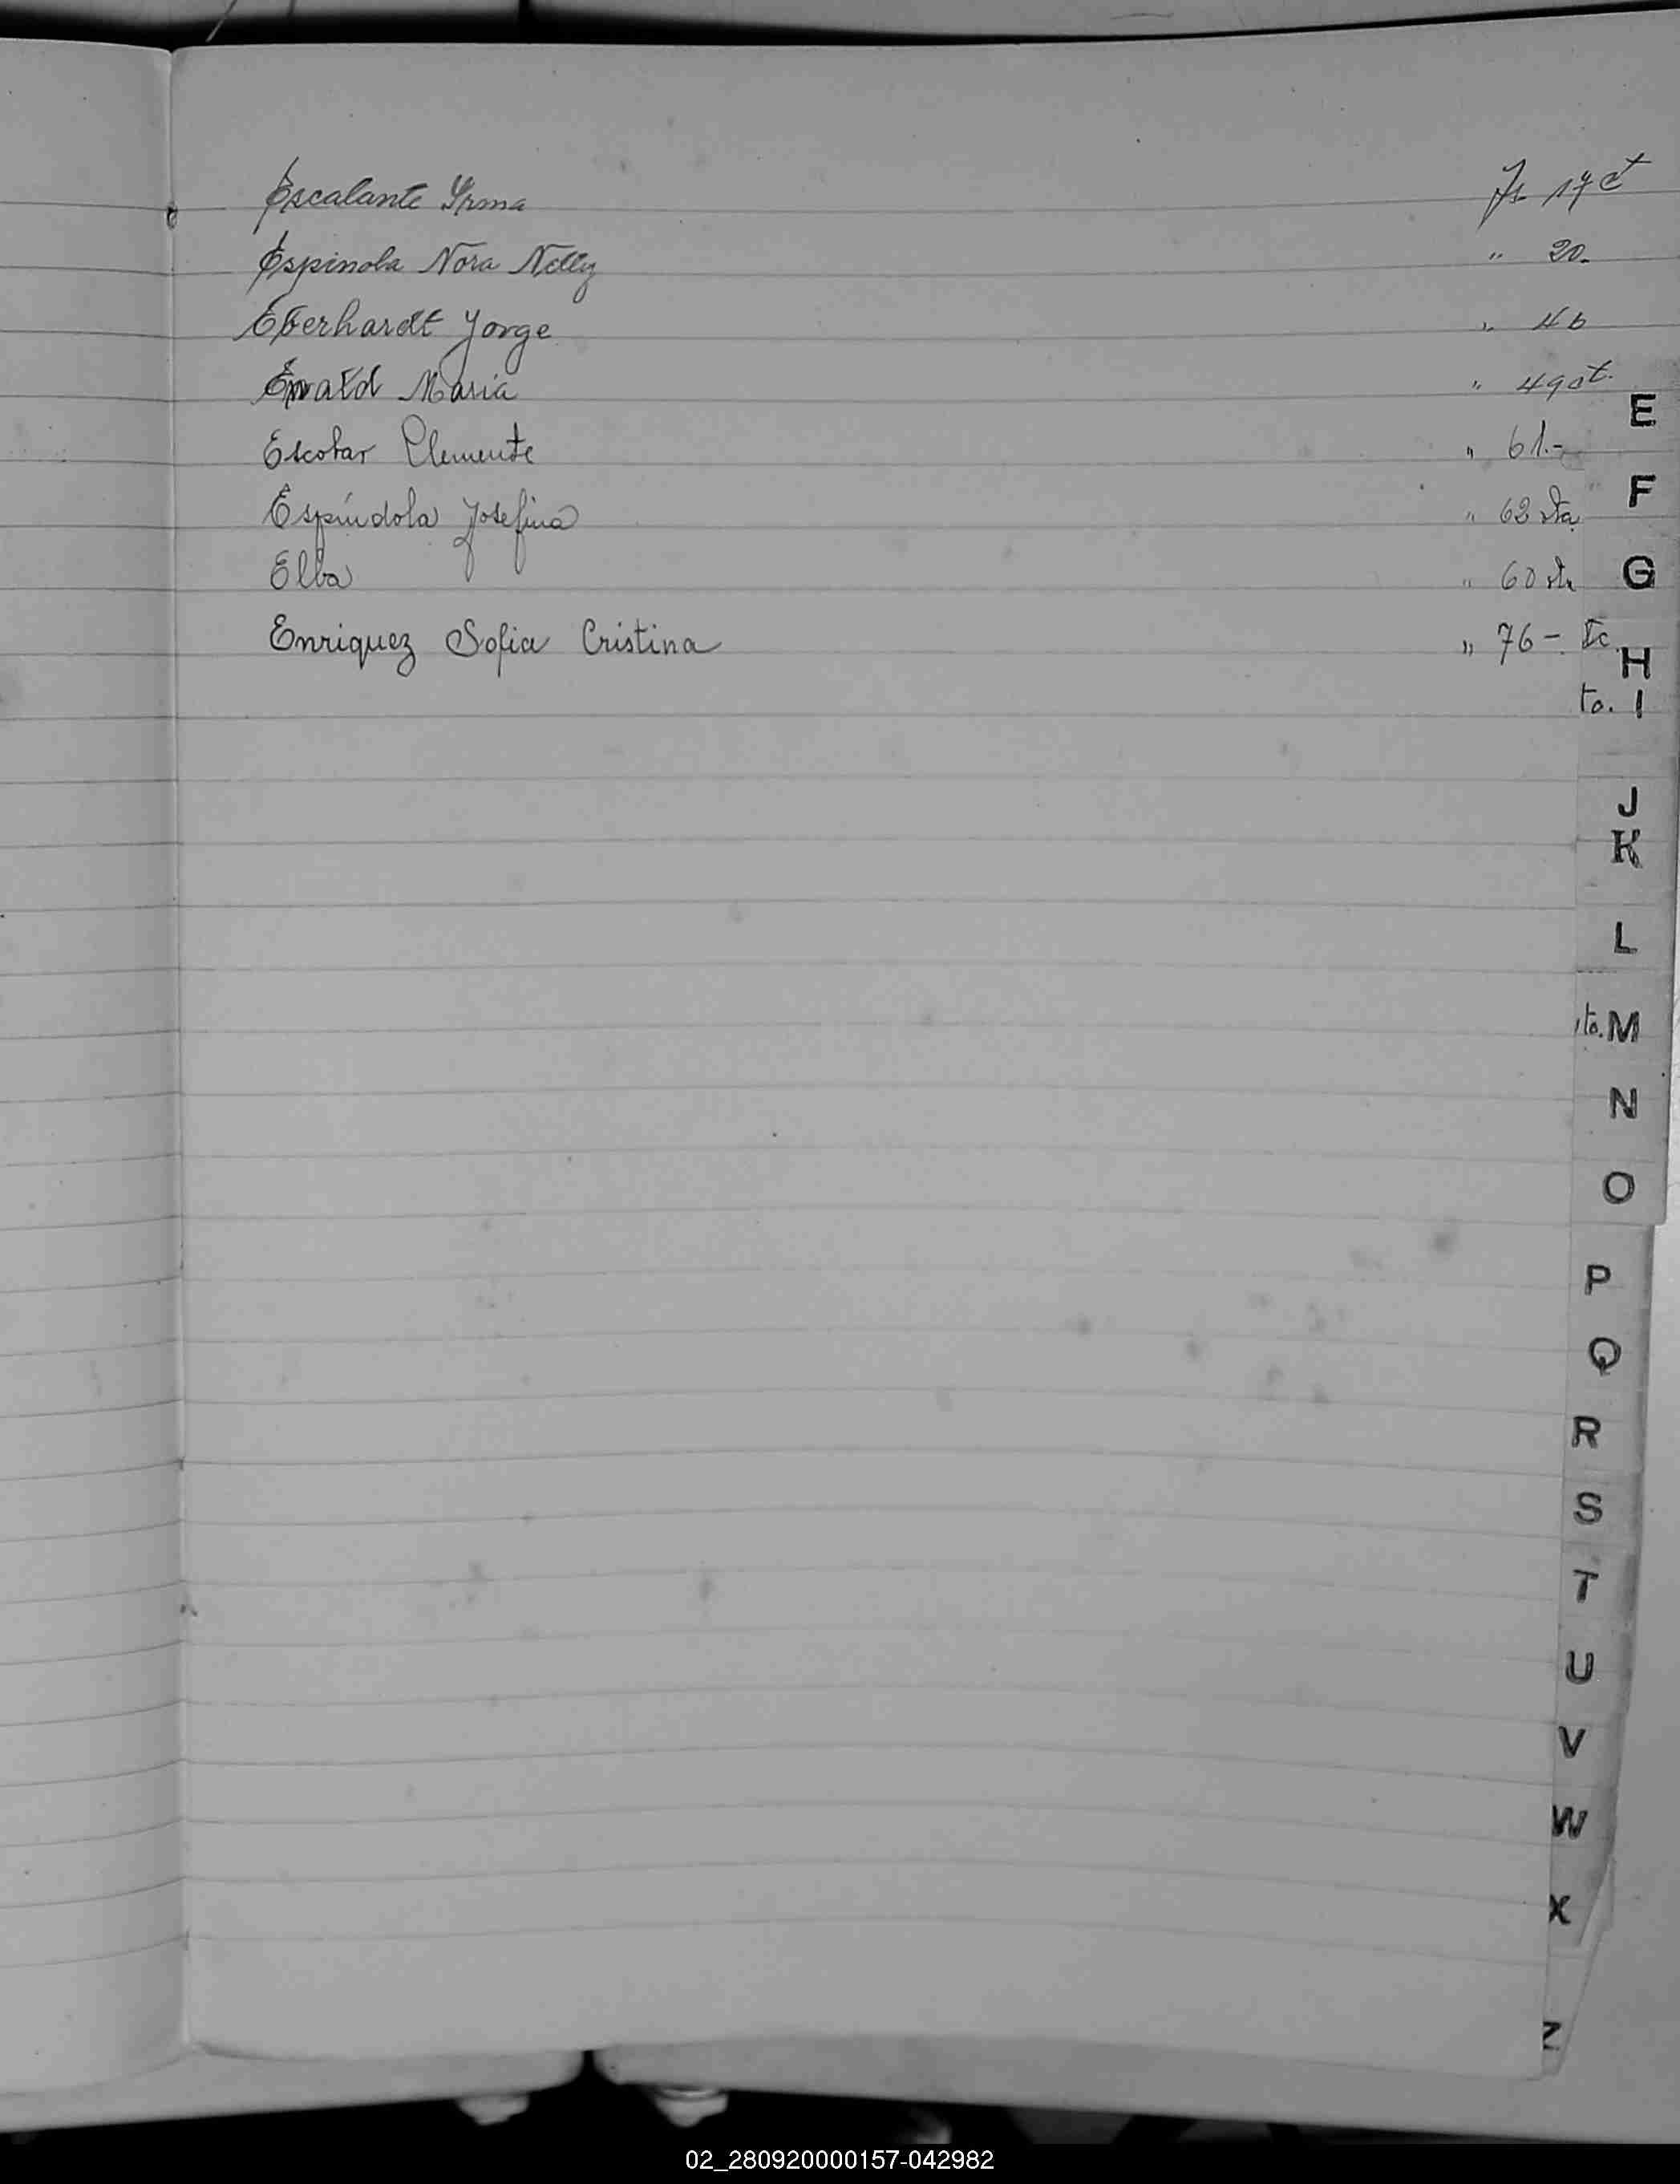 Escalante Yrma Fs 17 ct
Espinola Nora Nelly " 20.
Eberhardt Jorge " 46
Ewald María " 49 ct.
Escobar Clemente " 61.-
Espíndola Josefina " 62 vta
Elba " 60 vta
Enriquez Sofia Cristina " 76 -
to.
to.
E
F
G
H
I
J
K
L
M
N
O
P
Q
R
S
T
U
V
W
X
Z
02_280920000157-042982